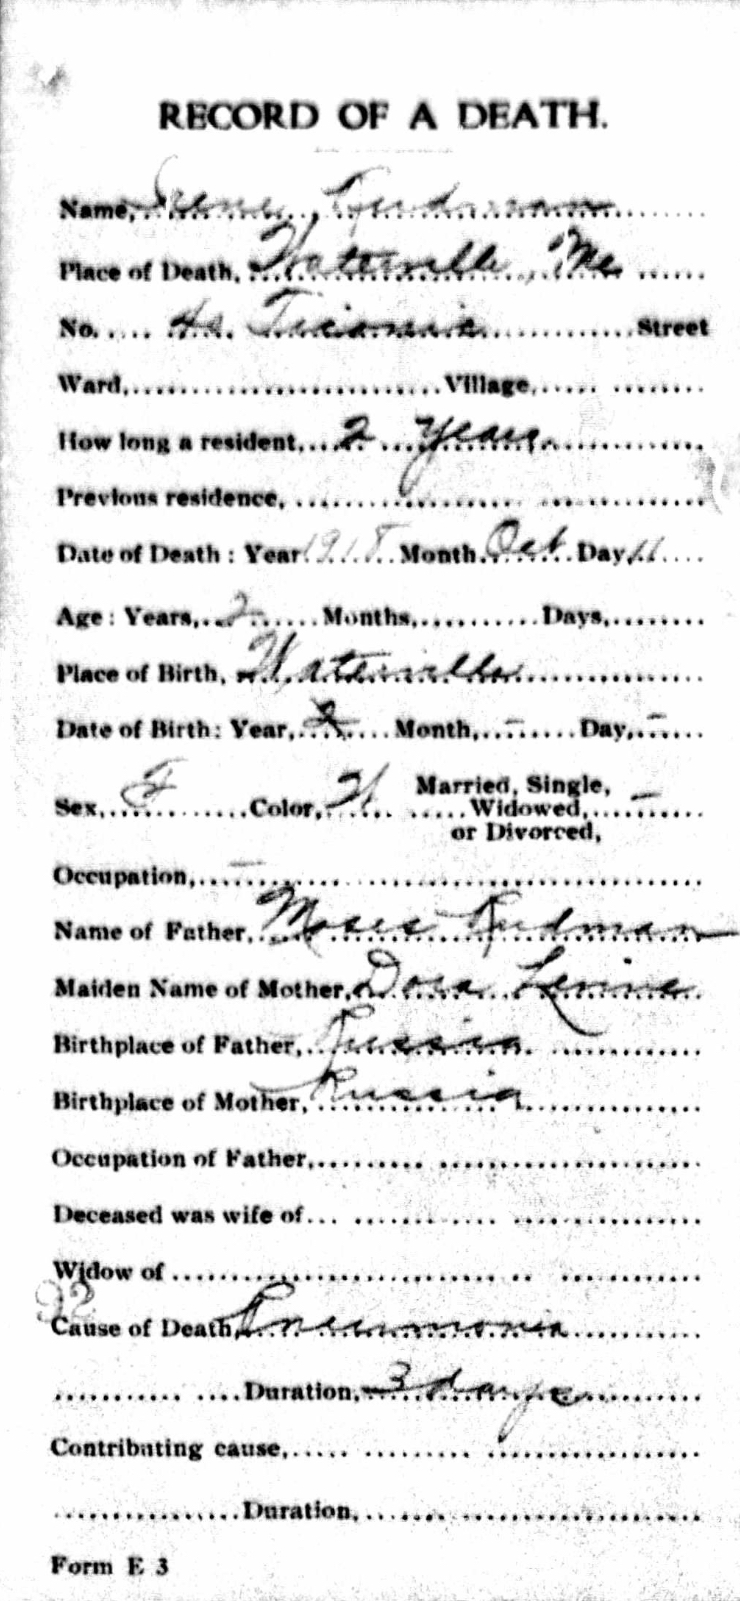 RECORD OF A DEATH.
Name, Irene Rudman
Place of Death, Waterville, Me
No. Ticonic Street
Ward, Village,
How long a resident, 2 years.
Previous residence,
Date of Death: Year 1918 Month Oct Day, 11
Age: Years, 2 Months, Days,
Place of Birth, Waterville
Date of Birth: Year, 2 Month, - Day, -
Sex, F Color, W Married, Single, Widowed, or Divorced, -
Occupation, -
Name of Father, Moses Rudman
Maiden Name of Mother, Dora Levine
Birthplace of Father, Russia
Birthplace of Mother, Russia
Occupation of Father,
Deceased was wife of
Widow of
92
Cause of Death, Pneumonia
Duration, 3 days
Contributing cause,
Duration,
Form E 3